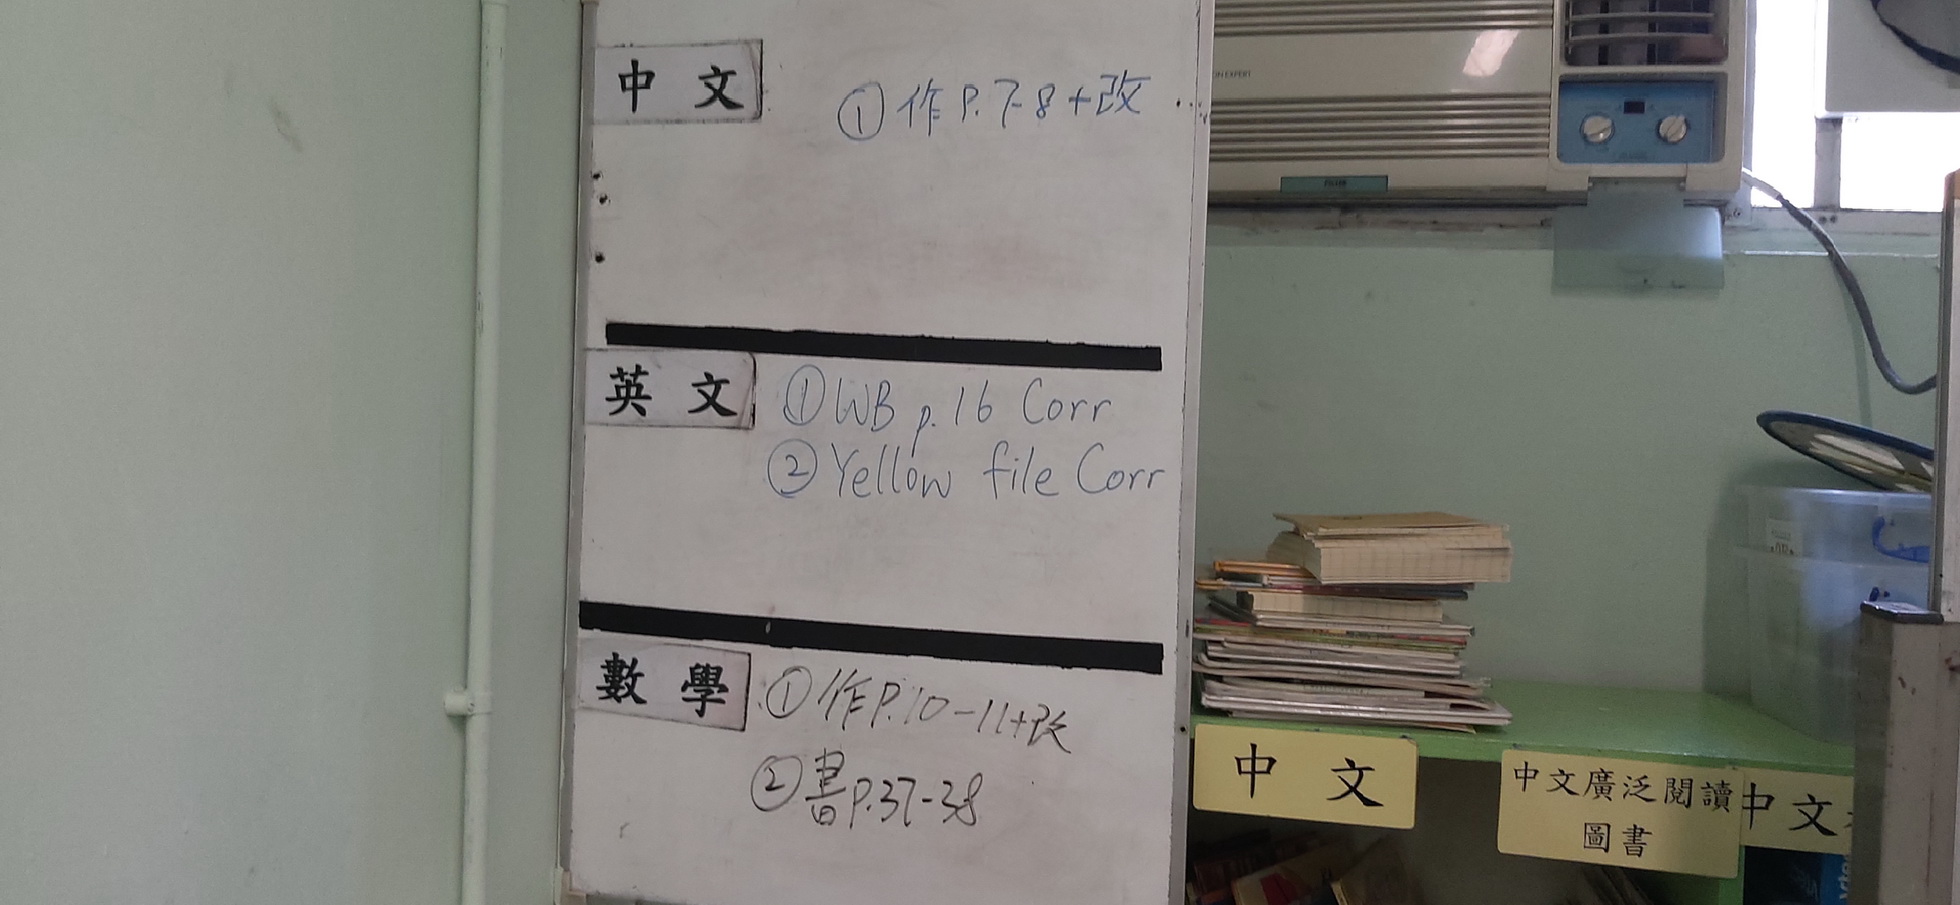 中文
① 作 P.7-8 + 改
英文
① WB p.16 Corr
② Yellow file Corr
數學
① 作 P.10-11+改
② 書 P.37-38
中文
中文廣泛閱讀
圖書
中文